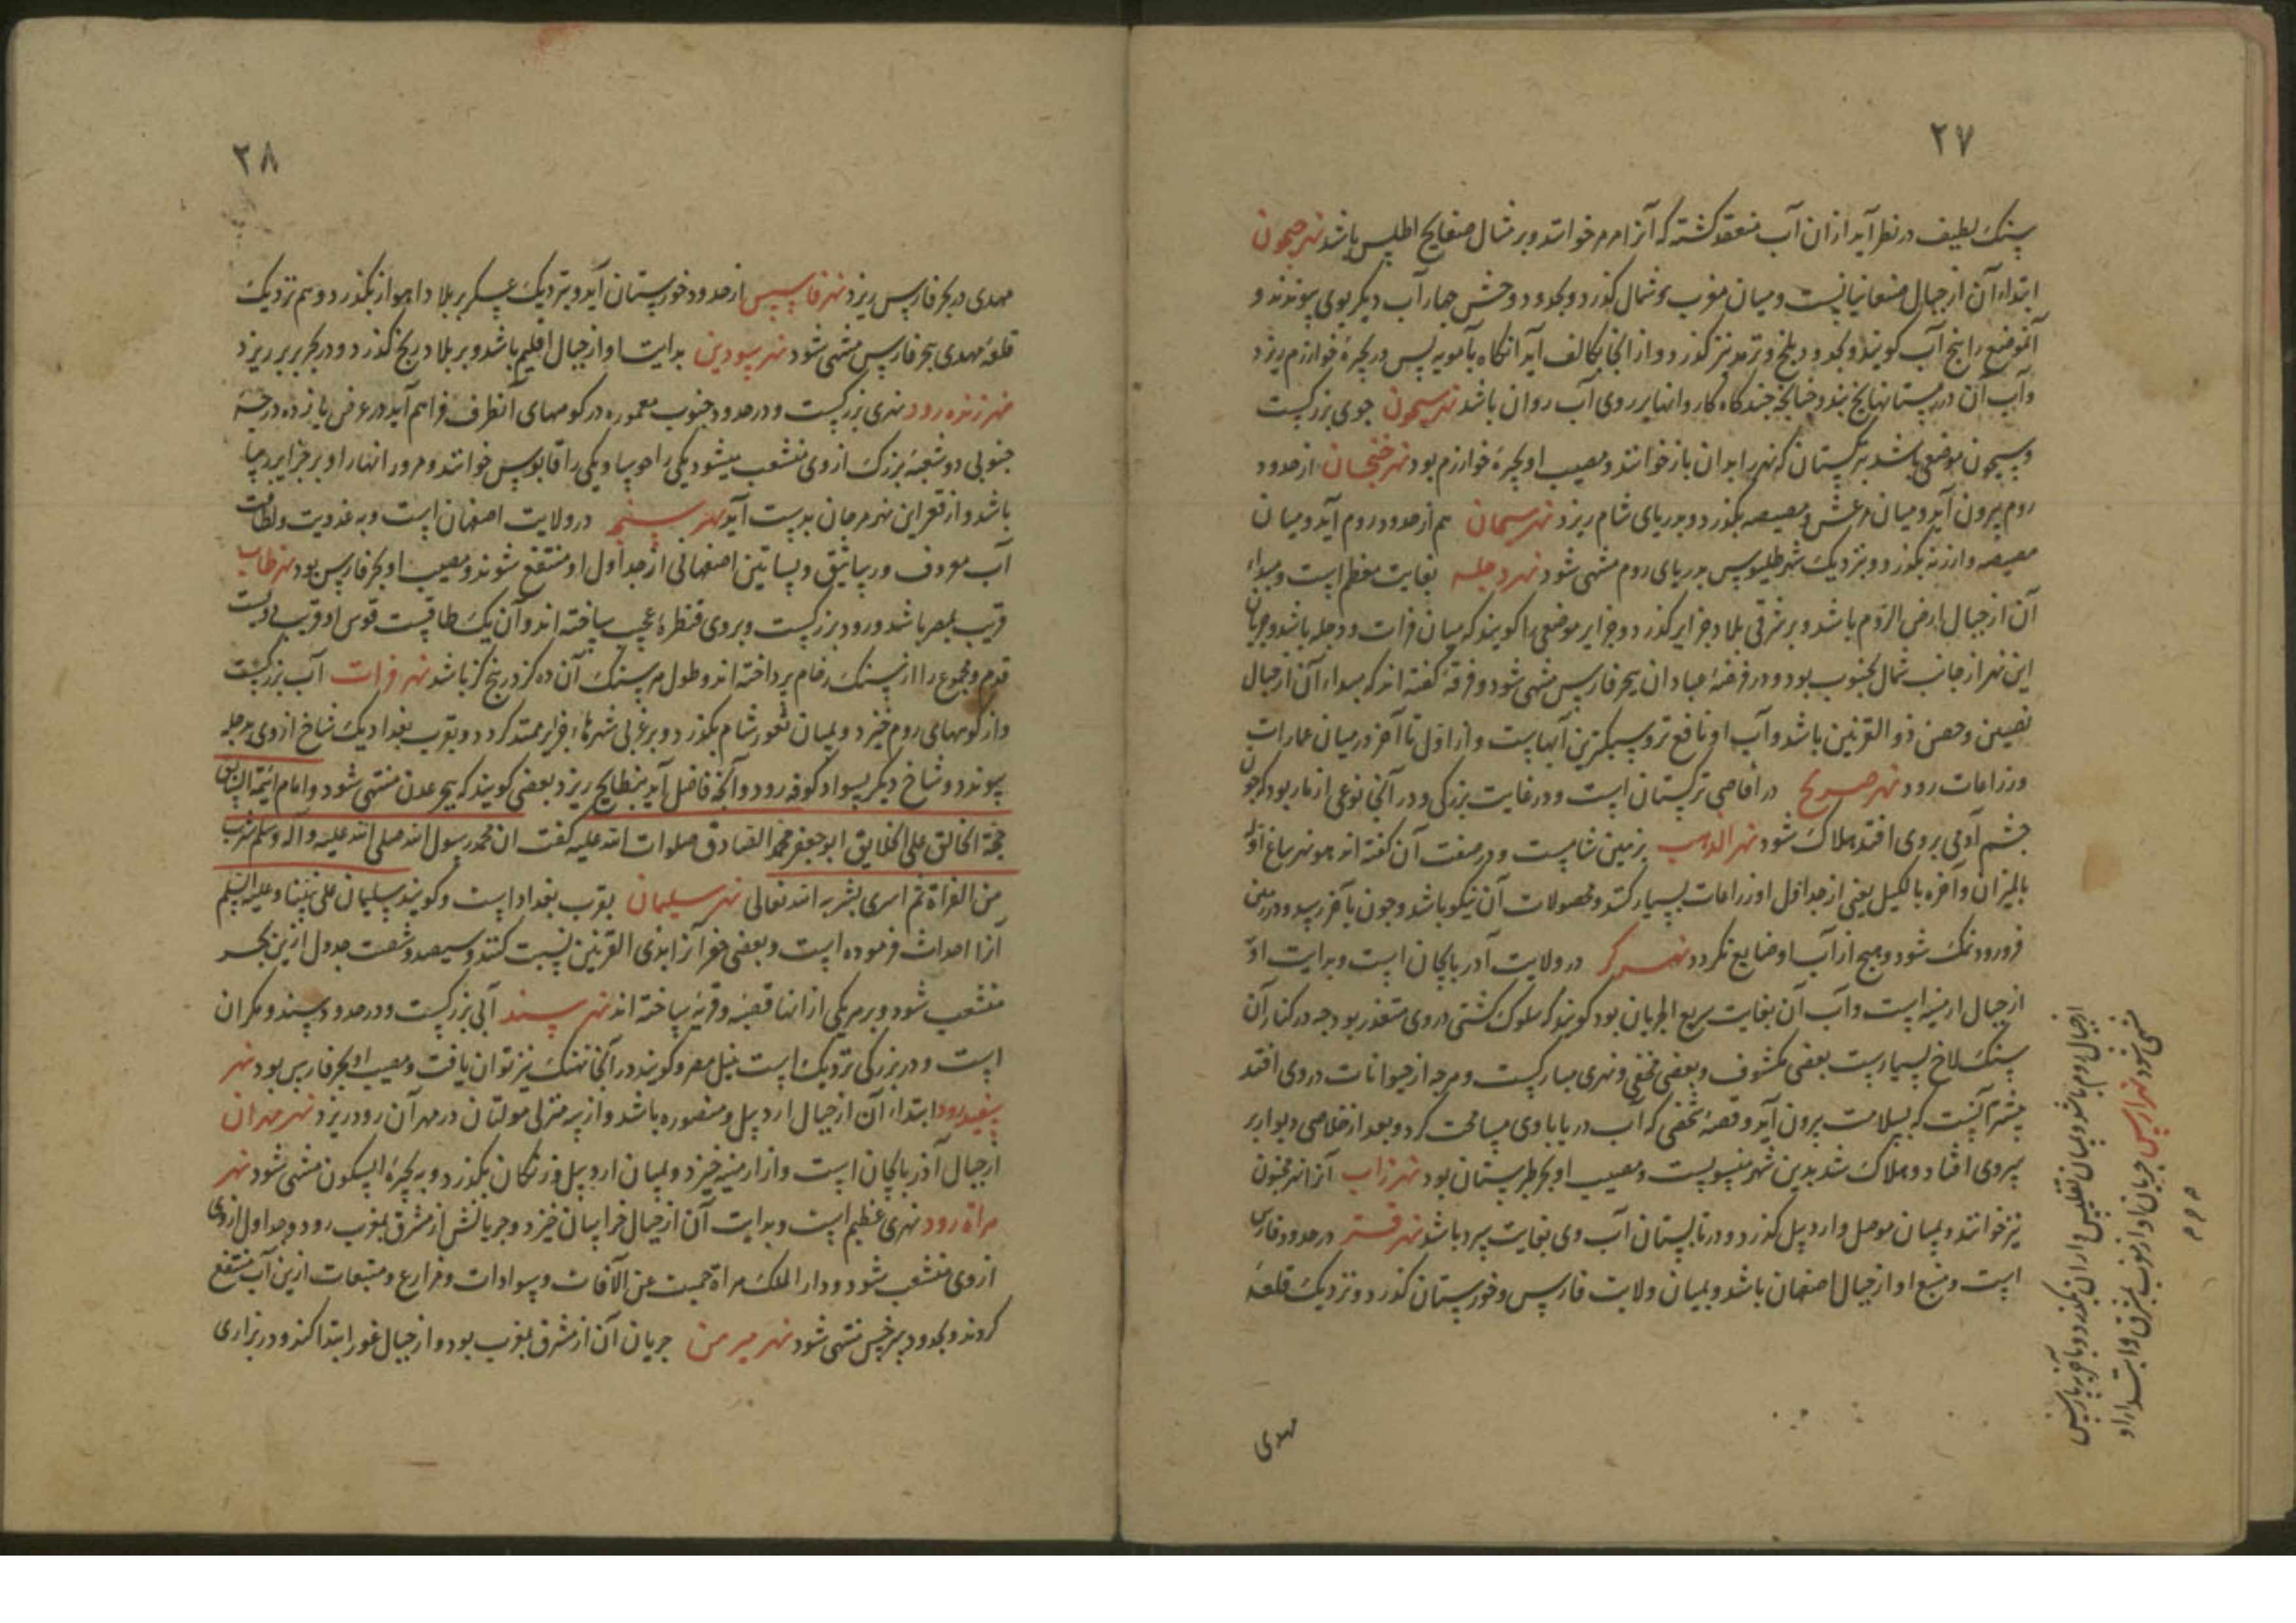 ۲۷
سنک لطیف در نظر آید از ان آب منعقد کشته که آنرا مرمر خوانند و بر مثال صفایح اطلس باشد نهر جیحون
ابتداء آن از جبال صنعانیانست و میان مغرب و شمال کذرد و بحدود وخش چهار آب دیکر بوی پیوندند و
آنموضع را پنج آب کویند و بحدود بلخ و ترمد نیز کذرد و از انجا بکالف آید آنکاه بآمویه پس در بحیرهٔ خوارزم ریزد
و آب آن در زمستانها یخ بندد چنانچه چند کاه کاروانها بر روی آب روان باشد نهر سیحون جوی بزرکست
و سیحون موضعی باشد بترکستان که نهر را بدان باز خوانند و مصب او بحیرهٔ خوارزم بود نهر جیحان از حدود
روم بیرون آید و میان مرعش و مصیصه بکذرد و بدریای شام ریزد نهر سیحان هم از حدود روم آید و میان
مصیصه و ارزنه بکذرد و بنزدیک شهر طلیوس بدریای روم منتهی شود نهر دجله بغایت معظم است و مبداء
آن از جبال ارض الروم باشد و بر شرقی بلاد جزایر کذرد و جزایر موضعی را کویند که میان فرات و دجله باشد و جریان
این نهر از جانب شمال بجنوب بود و در فرضهٔ عبادان ببحر فارس منتهی شود و فرقهٔ کفته اند که مبداء آن از جبال
نصیبین و حصن ذو القرنین باشد و آب او نافع تر و سبکترین آبهاست و از اول تا آخر در میان عمارات
و زراعات رود نهر صریح در اقاصی ترکستان است و در غایت بزرکی و در آنجا نوعی از مار بود که چون
چشم آدمی بروی افتد هلاک شود نهر الذهب بزمین شامست و در صفت آن کفته اند هو نهر یباع اوله
بالمیزان و آخره بالکیل یعنی از جداول او زراعات بسیار کنند و محصولات آن نیکو باشد و چون بآخر رسد و در زمین
فرو رود نمک شود و هیچ از آب او ضایع نکردد نهر کر در ولایت آذربایجان است و بدایت او
از جبال ارمنیه است و آب آن بغایت سریع الجریان بود کویند که سلوک کشتی در وی متعذر بود چه در کنار آن
سنک لاخ بسیارست بعضی مکشوف و بعضی مخفی و نهری مبارکست و هرچه از حیوانات در وی افتد
بیشتر آنست که بسلامت بیرون آید و قصهٔ شخصی که آب در یا با وی مسامحت کرد و بعد از خلاصی دیوار بر
سر وی افتاد و هلاک شد بدین نهر منسوبست و مصب او بحر طبرستان بود نهر زاب آنرا نهر مجنون
نیز خوانند و بمیان موصل و اردبیل کذرد و در تابستان آب وی بغایت سرد باشد نهر تستر در حدود فارس
است و منبع او از جبال اصفهان باشد و بمیان ولایت فارس و خوزستان کذرد و نزدیک قلعهٔ
مهدی
منتهی شود نهر ارس جریان او از مغرب بمشرق و ابتداء او
از جبال روم باشد و میان تفلیس و اران بکذرد و
۲۸
مهدی در بحر فارس ریزد نهر فاسیس از حدود خوزستان آید و بنزدیک عسکر بر بلاد اهواز بکذرد و هم نزدیک
قلعهٔ مهدی ببحر فارس منتهی شود نهر سودین بدایت او از جبال اقلیم باشد و بر بلاد ریخ کذرد و در بحر بربر ریزد
نهر زنده رود نهری بزرکست و در حدود جنوب معموره در کوههای آنطرف فراهم آید در عرض یازده درجهٔ
جنوبی دو شعبهٔ بزرک از وی منشعب میشود یکی را حوسا و یکی را قابوس خوانند و مرور انهار او بر جزایر
باشد و از قعر این نهر مرجان بدست آید نهر در ولایت اصفهان است و بعذوبت و لطافت
آب معروف و رساتیق و بساتین اصفهانی از جداول او منتفع شوند و مصب او بحر فارس بود نهر طاب
قریب بلصر باشد و رود بزرکست و بر وی قنطرهٔ عجب ساخته اند و آن یک طاقست قوس او قرب دویست
قدم و مجموع را از سنک رخام پرداخته اند و طول هر سنک آن ده کز در پنج کز باشد نهر فرات آب بزرکست
و از کوههای روم خیزد و بمیان ثغور شام بکذرد و بر غربی شهرهاء جزایر ممتد کردد و بقرب بغداد یک شاخ از وی بدجله
پیوندد و شاخ دیکر بسواد کوفه رود و آنچه فاضل آید ببطایح ریزد بعضی کویند که ببحر عدن منتهی شود و امام ائمة
حجة الخالق علی الخلایق ابو جعفر محمد الصادق صلوات الله علیه کفت ان محمد رسول الله صلی الله علیه و آله و سلم شرب
من الفراة ثم اسری بشر به الله تعالی نهر سلیمان بقرب بغداد است و کویند سلیمان علی نبینا و علیه السلم
آنرا احداث فرموده است و بعضی حفر آنرا بذی القرنین نسبت کنند و سیصد و شصت جدول ازین بحر
منشعب شود و بر هر یکی از انها قصبهٔ و قریهٔ ساخته اند نهر سند آبی بزرکست و در حدود سند و مکران
است و در بزرکی نزدیک است بنیل مصر و کویند در آنجا نهنک نیز توان یافت و مصب او بحر فارس بود نهر
سفید رود ابتداء آن از جبال اردبیل و منصوره باشد و از سه منزلی مولتان در مهر آن رود ریزد نهر مهران
از جبال آذربایجان است و از ارمنیه خیزد و بمیان اردبیل و زنکان بکذرد و به بحیرهٔ ابسکون منتهی شود نهر
هراة رود نهری عظیم است و بدایت آن از جبال خراسان خیزد و جریانش از مشرق بمغرب رود و جداول از وی
از وی منشعب شود و دار الملک هراة حمیت عن الآفات و سوادات و مزارع و متبعات ازین آب منتفع
کردند و بحدود سرخس منتهی شود نهر میرمن جریان آن از مشرق بمغرب بود و از جبال غور ابتدا کند و در بزاری